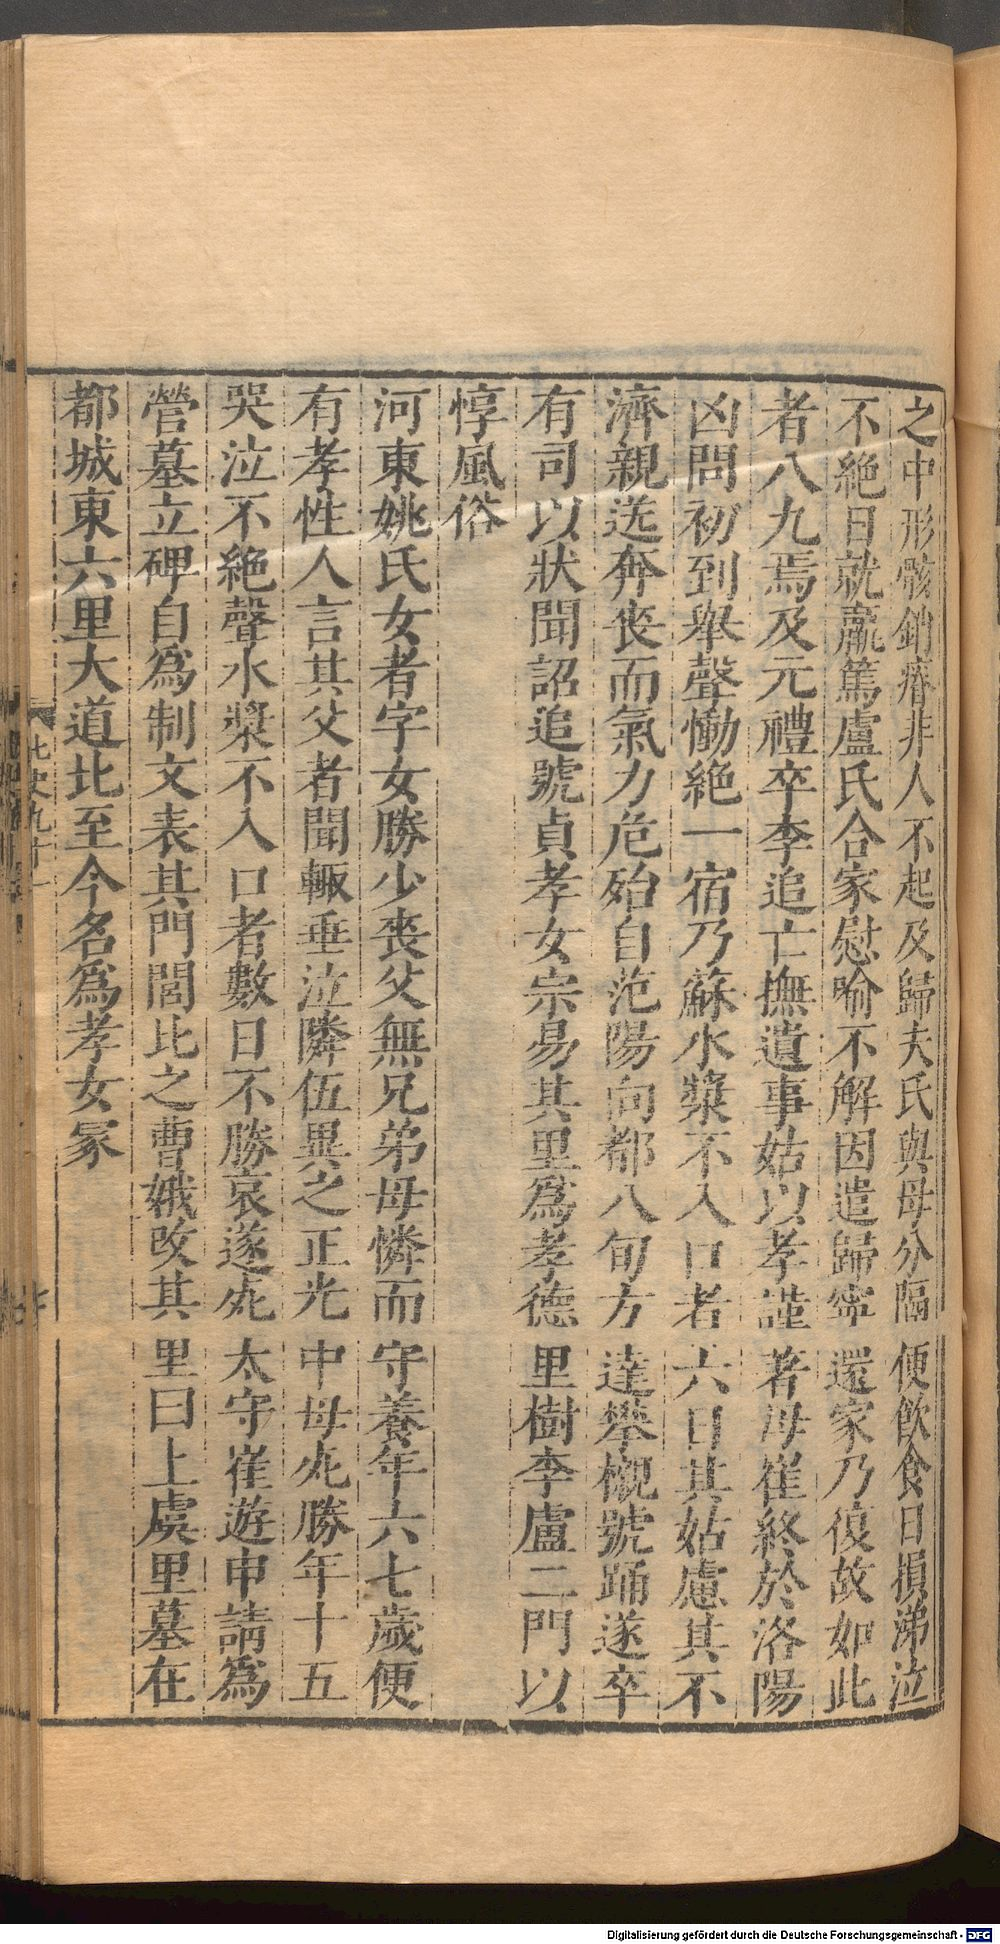 之中形骸銷瘠非人不起及歸夫氏與母分隔便飲食日損涕泣
不絕日就羸篤盧氏合家慰喻不解因遣歸寧還家乃復故如此
者八九焉及元禮卒李追亡撫遺事姑以孝謹著母崔終於洛陽
凶問初到舉聲慟絕一宿乃蘇水漿不入口者六日其姑慮其不
濟親送奔喪而氣力危殆自范陽向都八旬方達攀櫬號踊遂卒
有司以狀聞詔追號貞孝女宗易其里爲孝德里樹李盧二門以
惇風俗
河東姚氏女者字女勝少喪父無兄弟母憐而守養年六七歲便
有孝性人言其父者聞輙垂泣隣伍異之正光中母死勝年十五
哭泣不絕聲水漿不入口者數日不勝哀遂死太守崔遊申請爲
營墓立碑自爲制文表其門閭比之曹娥改其里曰上虞里墓在
都城東六里大道北至今名爲孝女冢
北史九十一
Digitalisierung gefördert durch die Deutsche Forschungsgemeinschaft - DFG